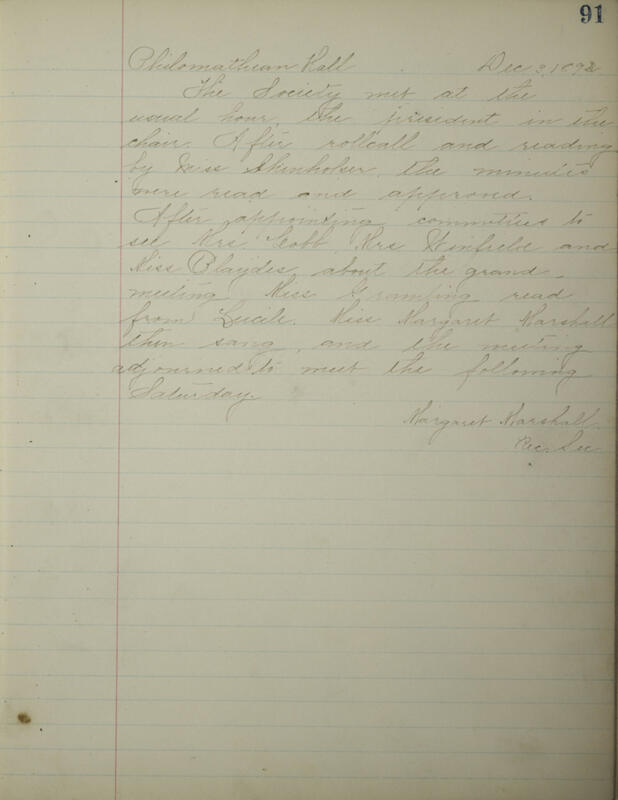 91
Philomathean Hall Dec 3, 1892
The Society met at the
usual hour, the president in the
chair. After rollcall and reading
by Miss Shinholser, the minutes
were read and approved.
After appointing committees to
see Mrs Cobb, Mrs Winfield and
Miss Blaydes, about the grand
meeting, Miss Grambling read
from Lucile. Miss Margaret Marshall
then sang, and the meeting
adjourned to meet the following
Saturday.
Margaret Marshall.
Rec. Sec.